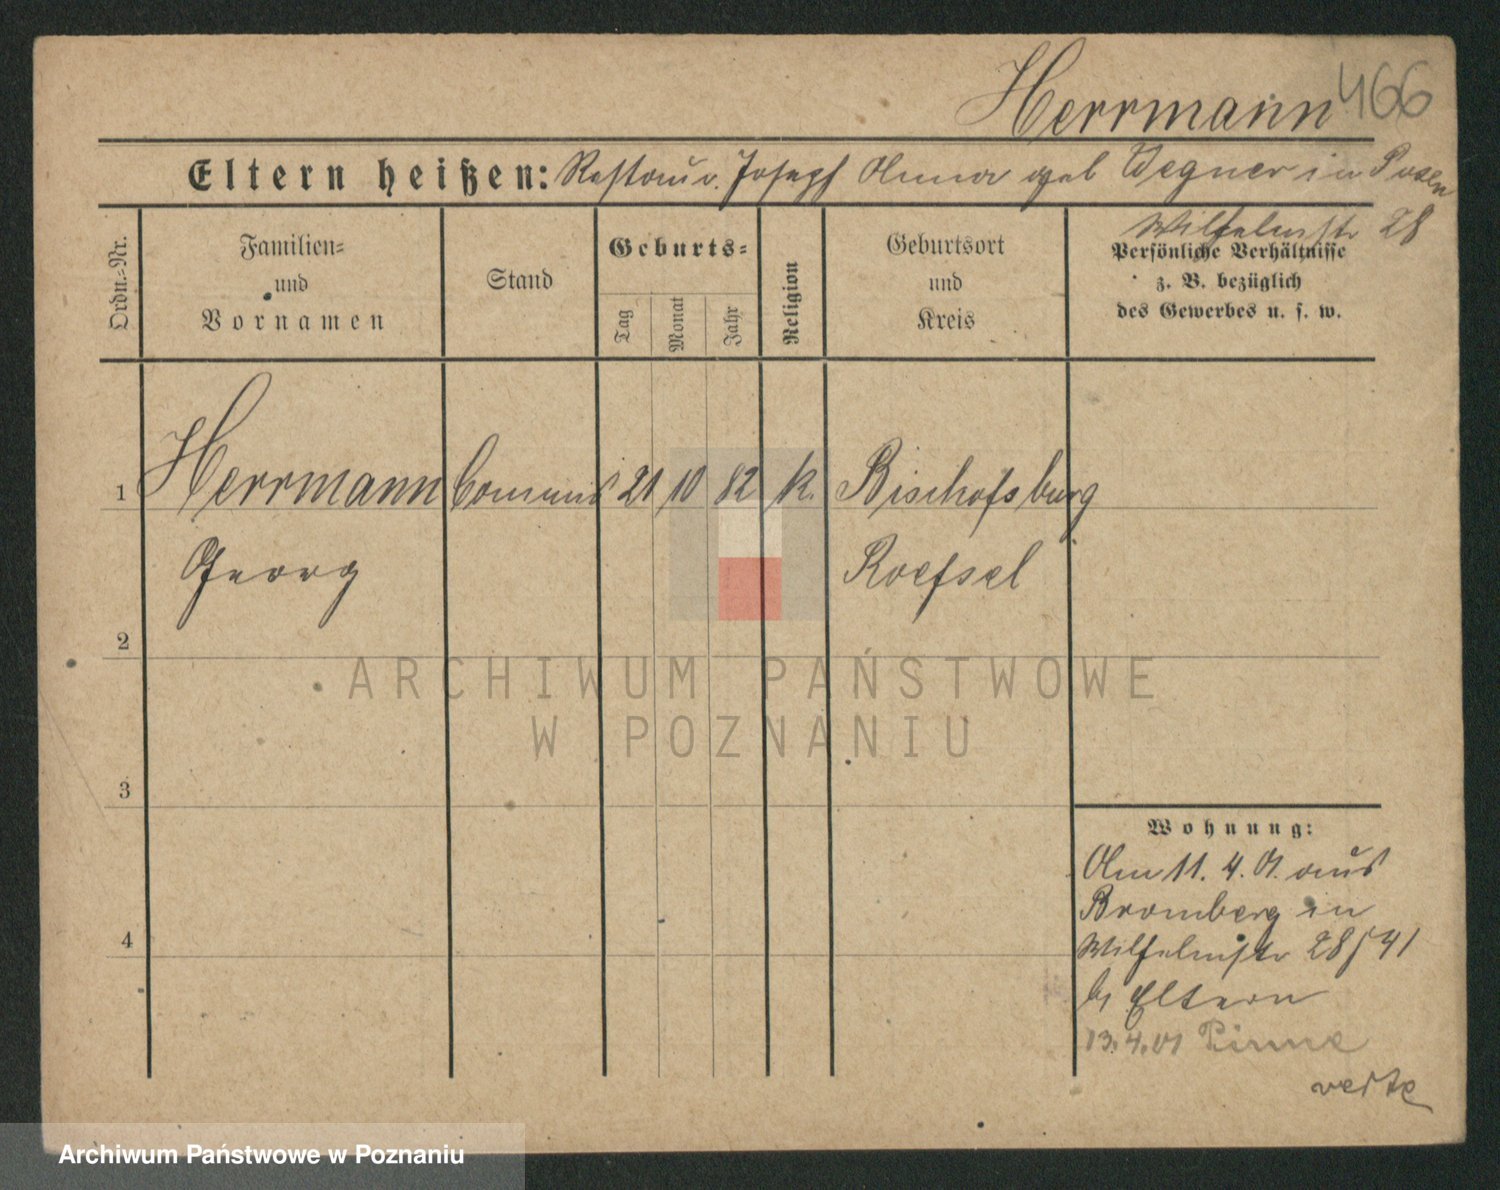 Herrmann 466
Eltern heißen: Restaur. Joseph Anna geb Wegner in Posen
Wilhelmstr 28
Ordn.-Nr.
Familien-
und
Vornamen
Stand
Geburts-
Tag
Monat
Jahr
Religion
Geburtsort
und
Kreis
Persönliche Verhältnisse
z. B. bezüglich
des Gewerbes u. s. w.
1 Herrmann Commis 21 10 82 k. Bischofsburg
Georg Roessel
2
3
4
ARCHIWUM PAŃSTWOWE
W POZNANIU
Wohnung:
Am 11. 4. 01. aus
Bromberg in
Wilhelmstr 28 41
b/ Eltern
13.4.01 Pinne
verte
Archiwum Państwowe w Poznaniu